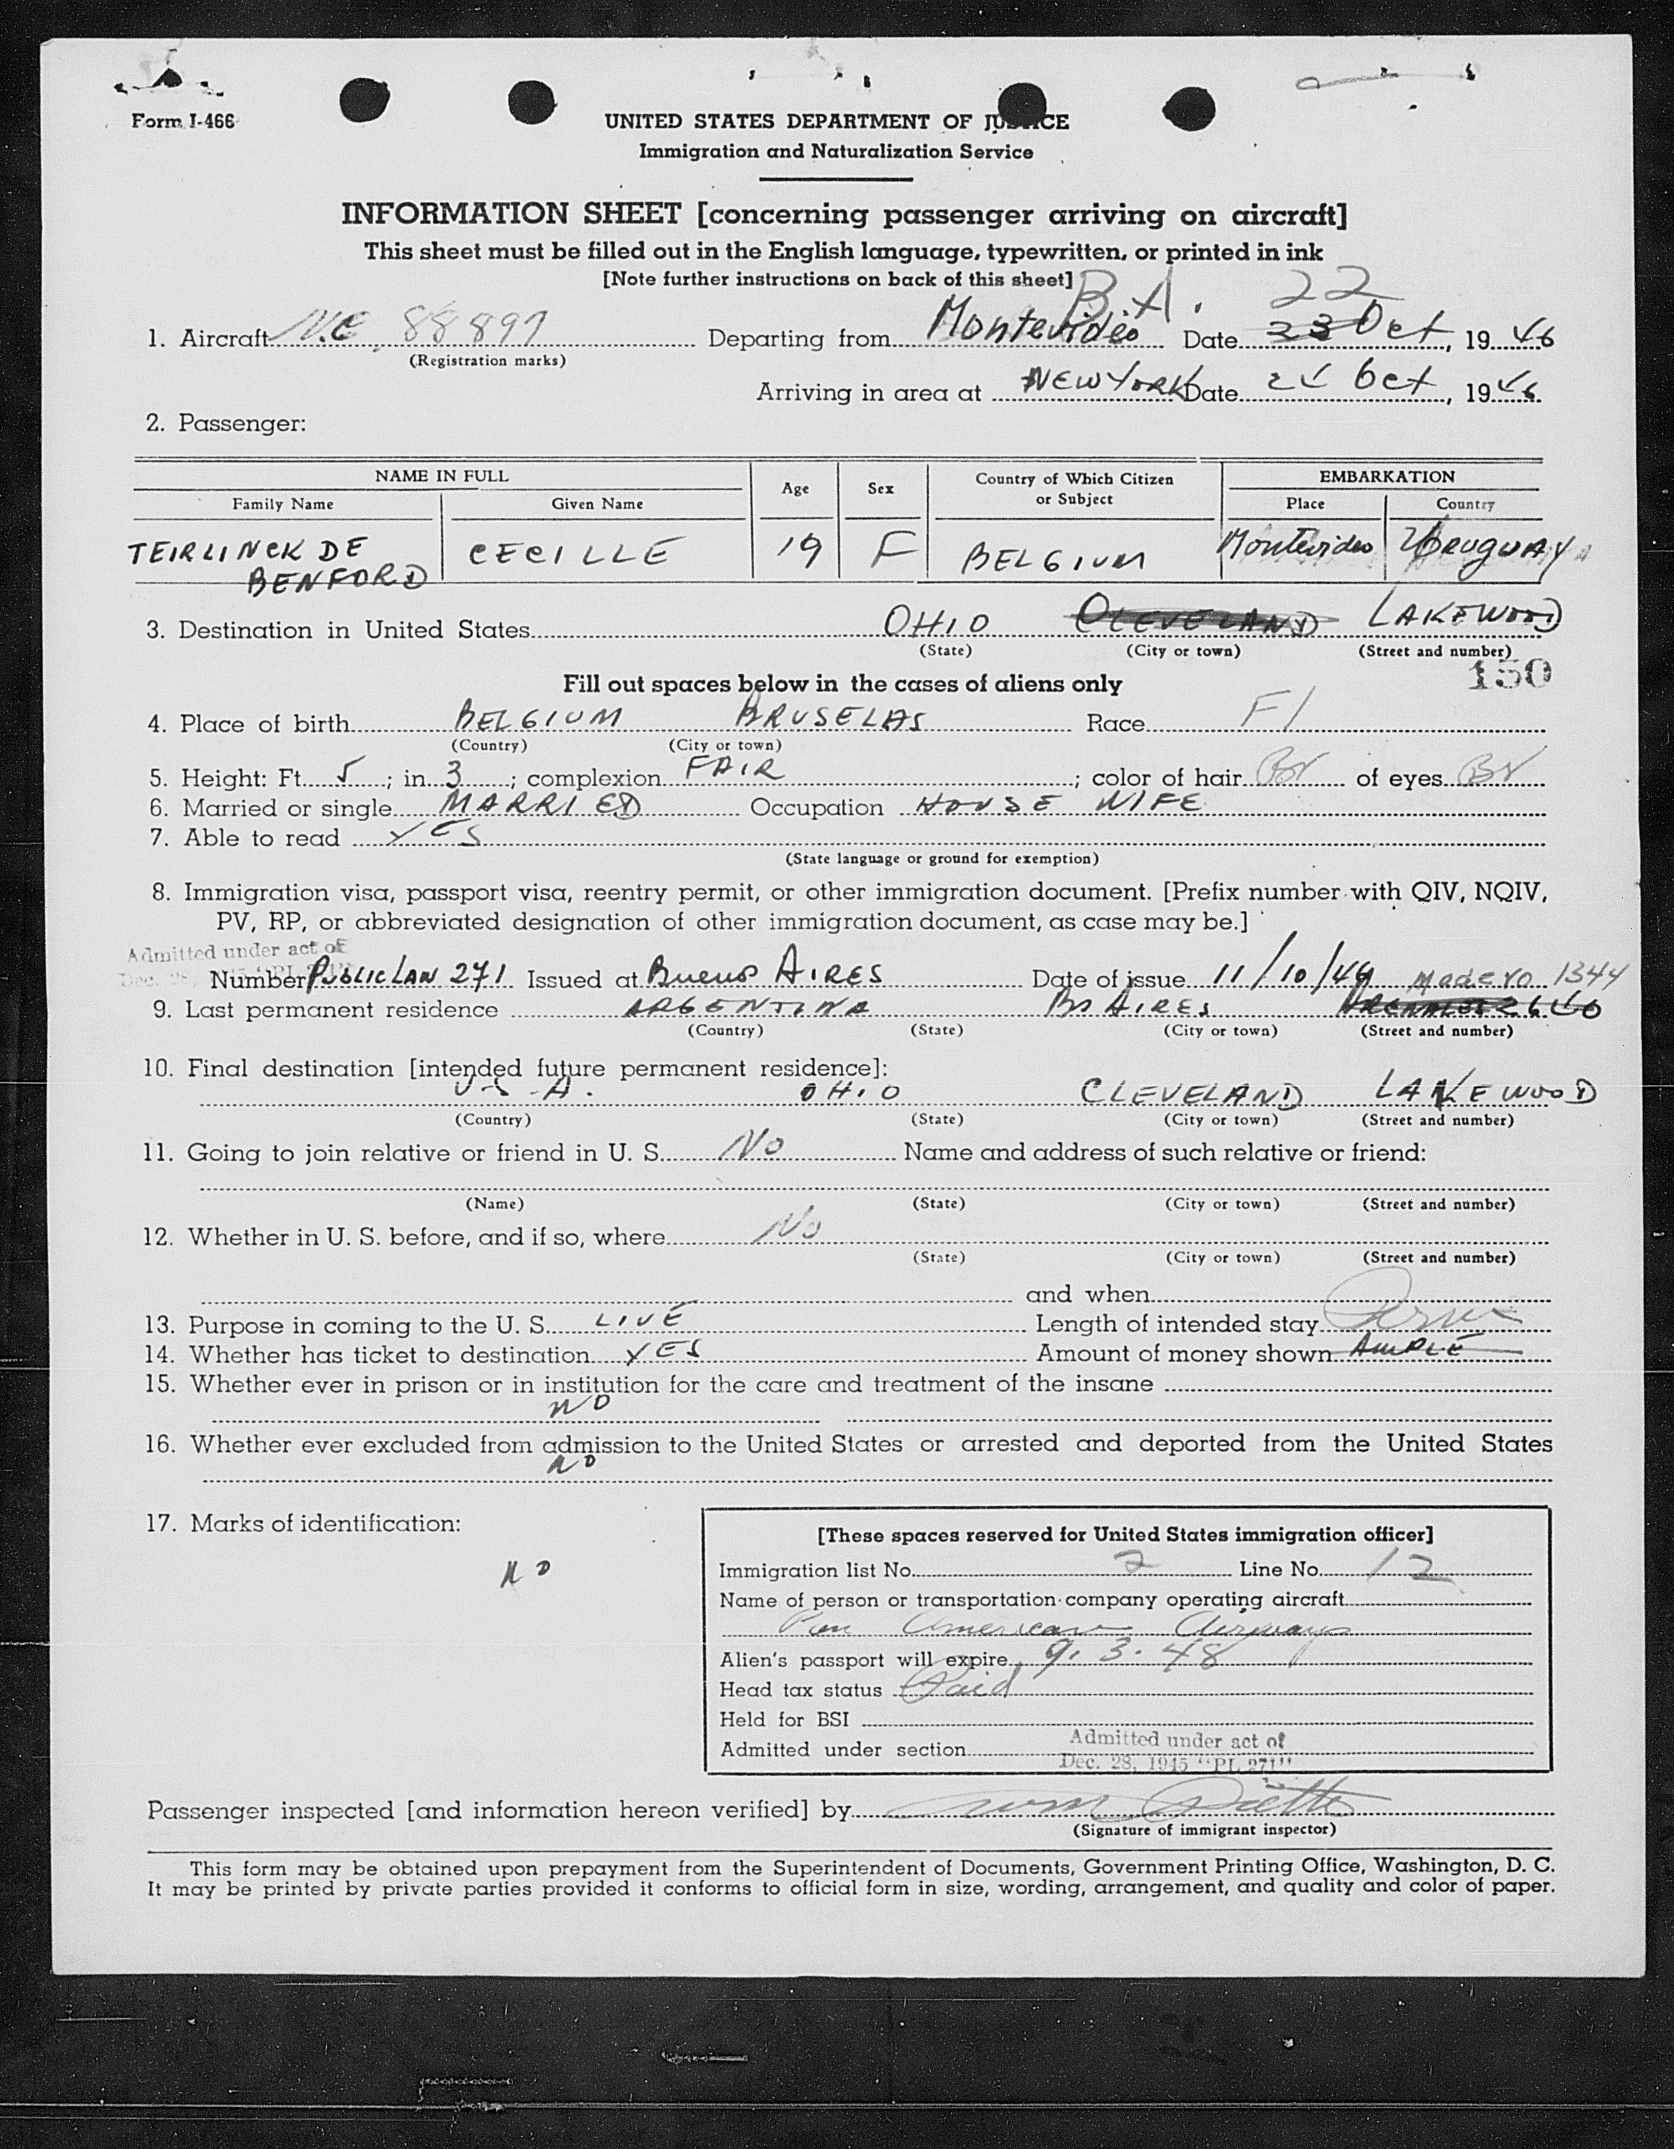 Form I-466
UNITED STATES DEPARTMENT OF JUSTICE
Immigration and Naturalization Service
INFORMATION SHEET [concerning passenger arriving on aircraft]
This sheet must be filled out in the English language, typewritten, or printed in ink
[Note further instructions on back of this sheet]
B.A. 22
1. Aircraft N.C. 88897 Departing from Montevideo Date 23 Oct, 1946
(Registration marks)
Arriving in area at NEW YORK Date 24 Oct, 1946
2. Passenger:
NAME IN FULL Age Sex Country of Which Citizen or Subject EMBARKATION
Family Name Given Name Place Country
TEIRLINCK DE CECILLE 19 F BELGIUM Montevideo Uruguay
BENFORD
3. Destination in United States OHIO CLEVELAND LAKEWOOD
(State) (City or town) (Street and number)
150
Fill out spaces below in the cases of aliens only
4. Place of birth BELGIUM BRUSELAS Race Fl
(Country) (City or town)
5. Height: Ft. 5; in. 3; complexion FAIR; color of hair Br of eyes Br
6. Married or single MARRIED Occupation HOUSE WIFE
7. Able to read YES
(State language or ground for exemption)
8. Immigration visa, passport visa, reentry permit, or other immigration document. [Prefix number with QIV, NQIV,
PV, RP, or abbreviated designation of other immigration document, as case may be.]
Admitted under act of
Dec. 28,
Number PUBLIC LAW 271 Issued at Buenos AIRES Date of issue 11/10/46 Madero 1344
9. Last permanent residence ARGENTINA Bs AIRES
(Country) (State) (City or town) (Street and number)
10. Final destination [intended future permanent residence]:
U-S-A. OHIO CLEVELAND LAKEWOOD
(Country) (State) (City or town) (Street and number)
11. Going to join relative or friend in U. S. No Name and address of such relative or friend:
(Name) (State) (City or town) (Street and number)
12. Whether in U. S. before, and if so, where No
(State) (City or town) (Street and number)
and when
13. Purpose in coming to the U. S. LIVE Length of intended stay Perm
14. Whether has ticket to destination YES Amount of money shown AMPLE
15. Whether ever in prison or in institution for the care and treatment of the insane
NO
16. Whether ever excluded from admission to the United States or arrested and deported from the United States
NO
17. Marks of identification:
NO
[These spaces reserved for United States immigration officer]
Immigration list No. 2 Line No. 12
Name of person or transportation company operating aircraft
Pan American Airways
Alien's passport will expire 9. 3. 48
Head tax status Paid
Held for BSI
Admitted under section Admitted under act of
Dec. 28, 1945 "PL 271"
Passenger inspected [and information hereon verified] by
(Signature of immigrant inspector)
This form may be obtained upon prepayment from the Superintendent of Documents, Government Printing Office, Washington, D. C.
It may be printed by private parties provided it conforms to official form in size, wording, arrangement, and quality and color of paper.